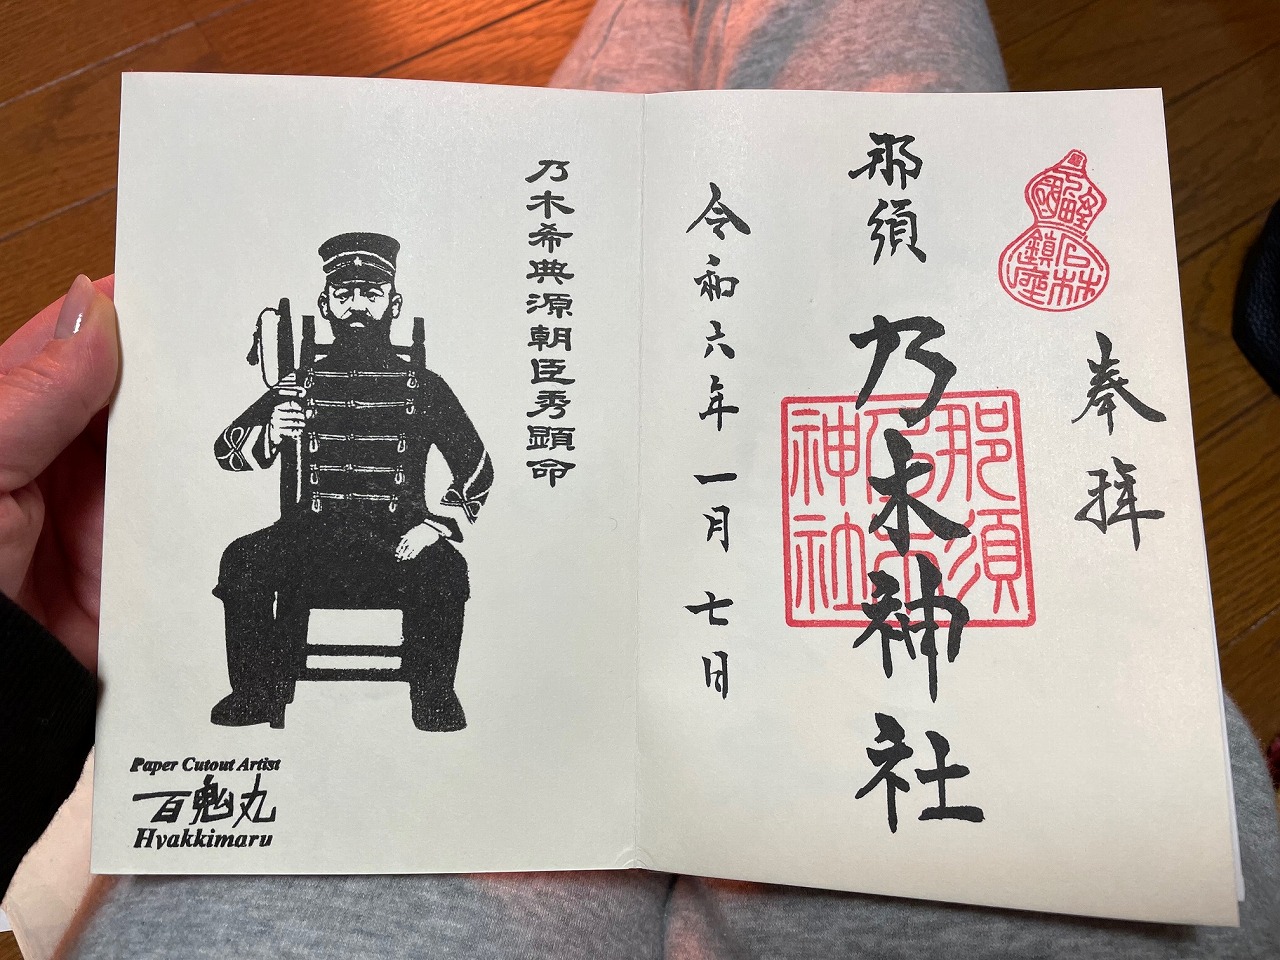 奉拝
石林
鎮座
那須乃木神社
那須
乃木
神社
令和六年一月七日
乃木希典源朝臣秀顕命
Paper Cutout Artist
百鬼丸
Hyakkimaru